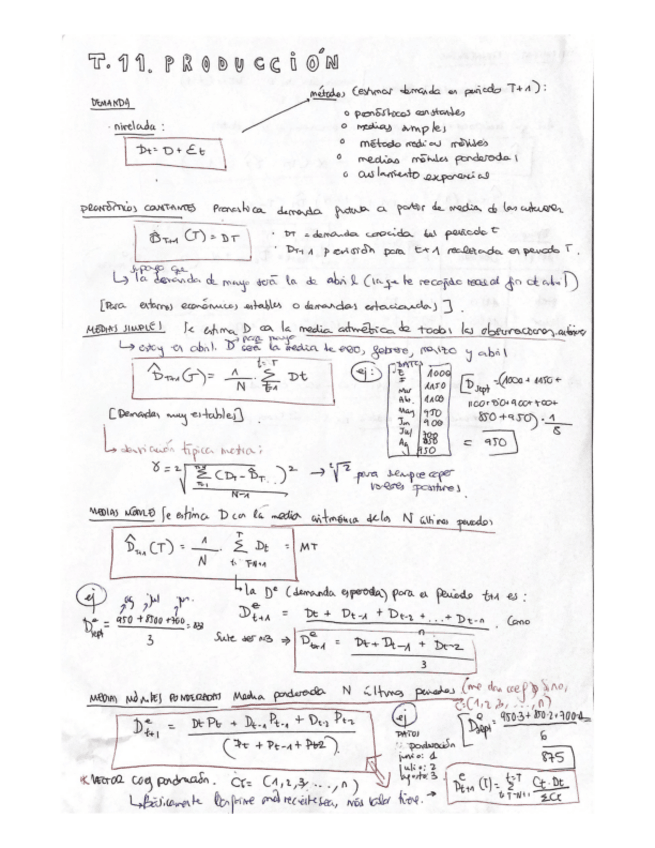 T.11. PRODUCCIÓN
métodos (estimar demanda en periodo T+1):
DEMANDA
o pronósticos constantes
· nivelada:
o medias simples
Dt = D + Ɛt
o método medias móviles
o medias móviles ponderadas
o exponencial
PRONÓSTICOS CONSTANTES Pronostica demanda futura a partir de media de las anteriores
D̂T+1 (T) = DT
· DT = demanda conocida del periodo t
· DT+1 previsión para t+1 realizada en periodo T.
↳ la demanda de mayo será la de abril (la que he recogido real al fin de abril)
[Para entornos económicos estables o demandas estacionadas].
MEDIAS SIMPLES Se estima D con la media aritmética de todas las observaciones anteriores
↳ estoy en abril. D para mayo será la media de ene, febrero, marzo y abril
D̂T+1 (T) = 1/N · Σ Dt
t=T
t=1
ej:
DATOS
E 1000
F
Mar 1150
Ab. 1100
May 950
Jun 900
Jul 700
Ag 850
950
[D sept = (1000 + 1150 +
850 + 950) · 1/8
= 950
[Demandas muy estables]
↳ desviación típica media:
para siempre coger
valores positivos
N-1
MEDIAS MÓVILES Se estima D con la media aritmética de los N últimos periodos
D̂T+1 (T) = 1/N · Σ Dt = MT
↳ la De (demanda esperada) para el periodo t+1 es:
ej
ag jul jun
De t+1 = Dt + Dt-1 + Dt-2 + ... + Dt-n / n . Como
De sept = 950 + 850 + 700 / 3
Suele ser n=3 ⇒ De t+1 = Dt + Dt-1 + Dt-2 / 3
MEDIAS MÓVILES PONDERADAS Media ponderada N últimos periodos (me dan coef) Si no,
c=(1,2,3,...,n)
De t+1 = Dt Pt + Dt-1 Pt-1 + Dt-2 Pt-2 / (Pt + Pt-1 + Pt-2)
ej
DATOS
ponderación
junio: 1
julio: 2
agosto: 3
[De sept = 950·3 + 850·2 + 700·1 / 6
875
* VECTOR coef ponderación. Ct = (1,2,3, ..., n)
De t+1 (T) = Σ Ct · Dt / ΣCt
↳ Básicamente conforme más reciente sea, más valor tiene.